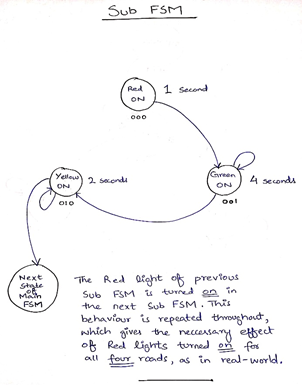 Sub FSM
Red
ON
1 second
000
Green
ON
4 seconds
001
Yellow
ON
2 seconds
010
Next
State
of
Main
FSM
The Red light of previous
Sub FSM is turned on in
the next Sub FSM. This
behaviour is repeated throughout,
which gives the neccessary effect
of Red lights turned on for
all four roads, as in real-world.